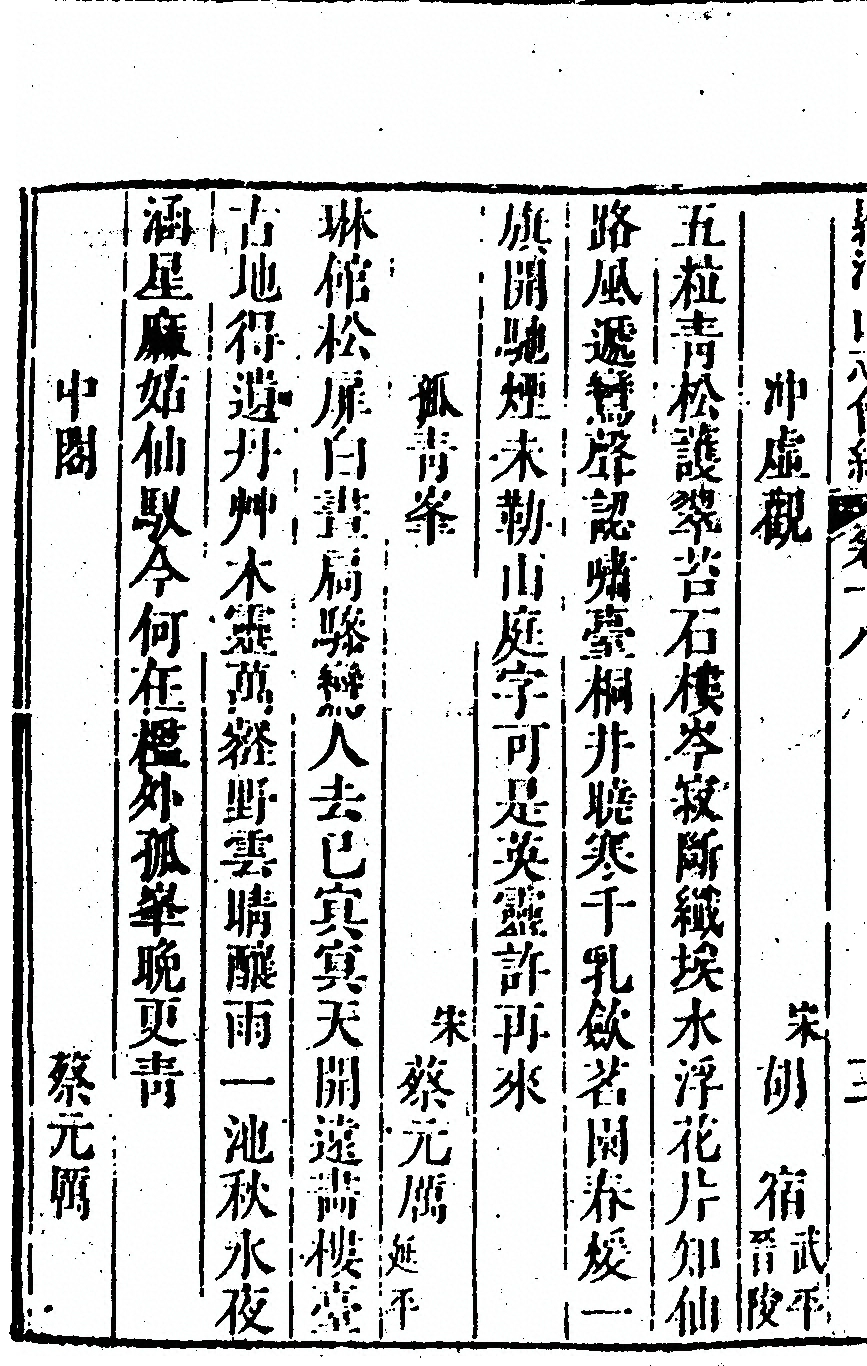 冲虛觀　宋胡　宿武平晉陵
五粒青松護翠苔石樓岑寂斷纖埃水浮花片知仙
路風遞鸞聲認嘯臺桐井曉寒千乳歛茗園春煖一
旗開馳煙未勒山庭字可是英靈許再來
孤青峯　宋蔡元厲延平
琳館松扉白晝扃驂鸞人去已寘寘天開遠畵樓臺
古地得遺丹艸木靈萬壑野雲晴釀雨一池秋水夜
涵星麻姑仙馭今何在檻外孤峯晚更青
中閣　蔡元厲